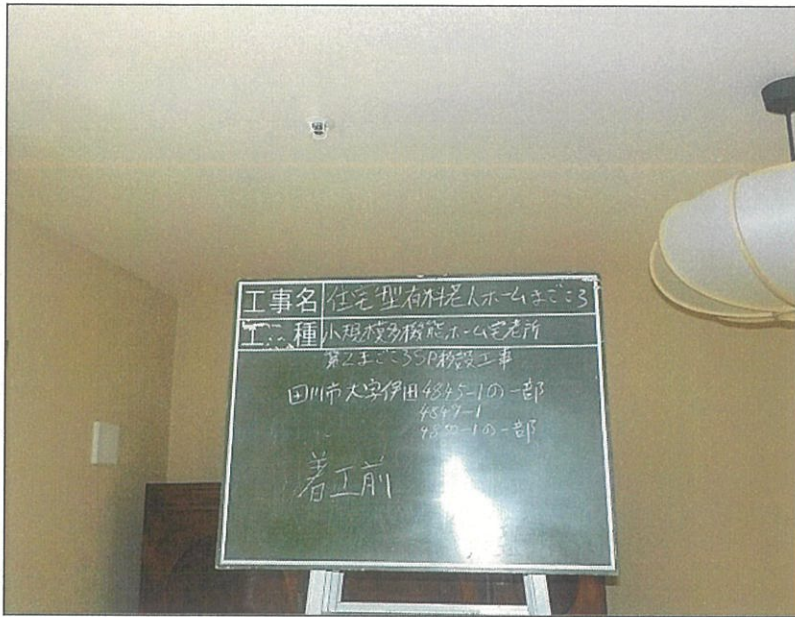 工事名 住宅型有料老人ホームまごころ
工種 小規模多機能ホーム宅老所
第2まごころSP移設工事
田川市大字伊田4845-1の一部
4849-1
の一部
着工前